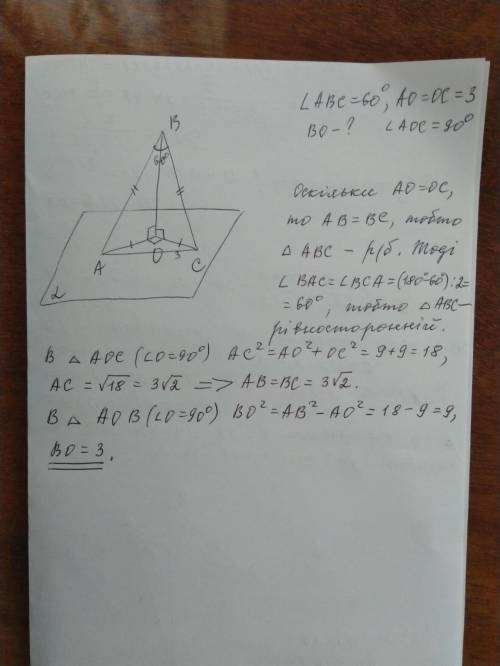 ∠ABC=60°, AO=OC=3
BO-? ∠AOC=90°
B
60°
A
O
3
C
α
Оскільки AO=OC,
то AB=BC, тобто
△ ABC - р/б. Тоді
∠ BAC=∠BCA=(180°-60°):2=
=60°, тобто △ABC-
рівносторонній.
В △ AOC (∠O=90°) AC²=AO²+OC²=9+9=18,
AC = √18 = 3√2 => AB=BC= 3√2.
В △ AOB (∠O=90°) BO²=AB²-AO²=18-9=9,
BO=3.